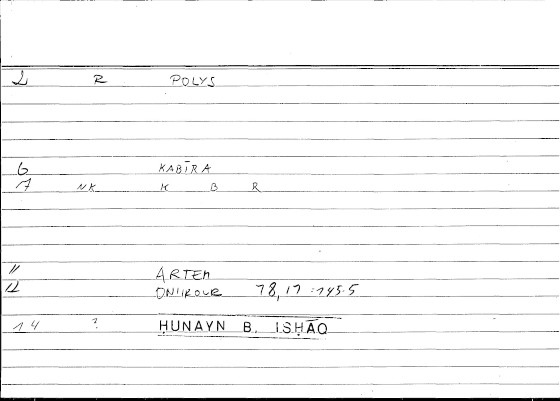 2 R POLYS
6 KABĪRA
7 NK K B R
11 ARTEM
12 ONIROCR 78,17 :145.5
14 ? ḤUNAYN B. ISḤĀQ